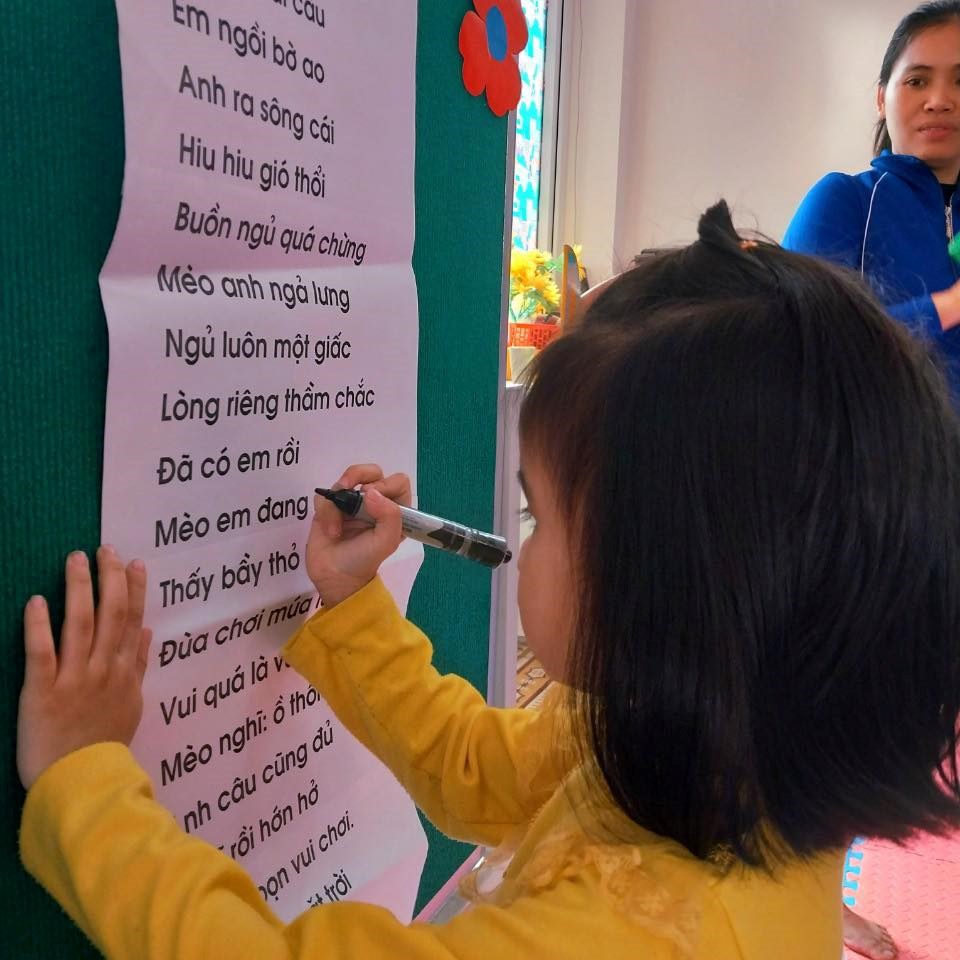 câu
Em ngồi bờ ao
Anh ra sông cái
Hiu hiu gió thổi
Buồn ngủ quá chừng
Mèo anh ngả lưng
Ngủ luôn một giấc
Lòng riêng thầm chắc
Đã có em rồi
Mèo em đang
Thấy bầy thỏ
Đùa chơi múa
Vui quá là
Mèo nghĩ: ồ
câu cũng đủ
rồi hớn hở
vui chơi.
trời